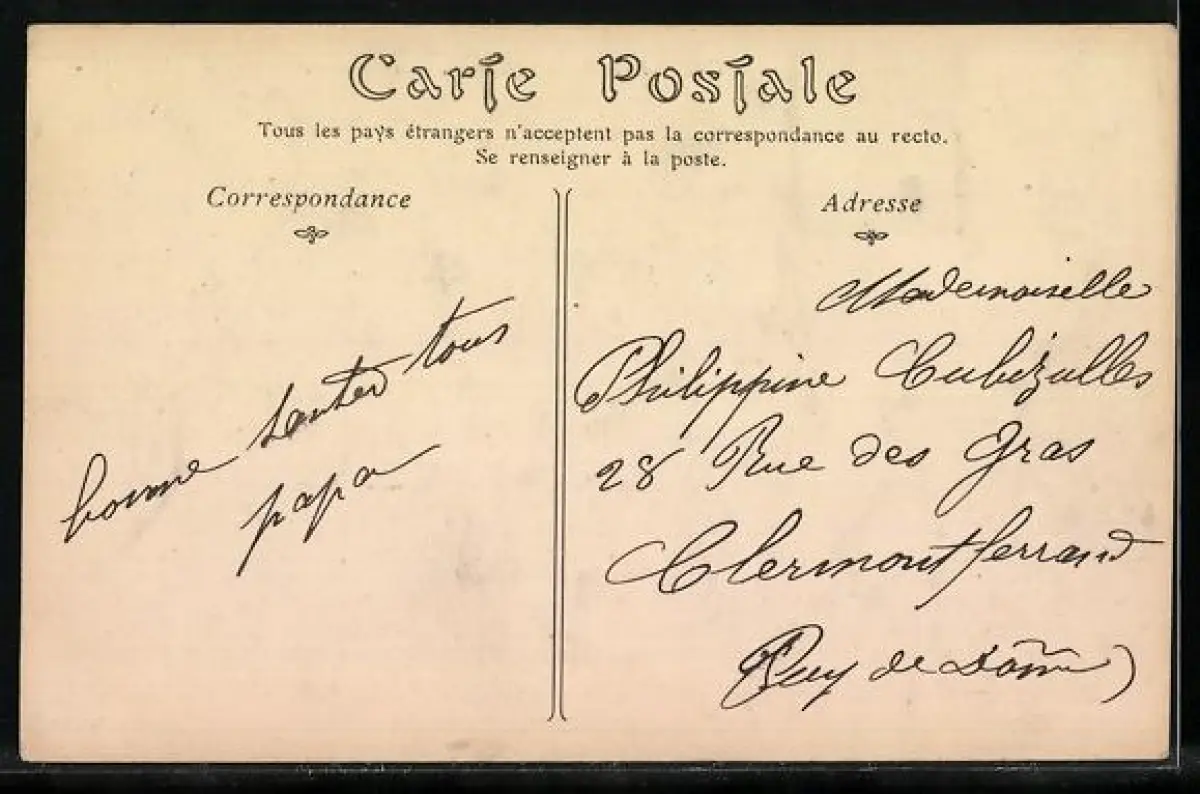 Carte Postale
Tous les pays étrangers n'acceptent pas la correspondance au recto.
Se renseigner à la poste.
Correspondance
bonne santer tous
papa
Adresse
Mademoiselle
Philippine Cubizolles
28 Rue des Gras
Clermont ferrand
Puy de Dôme)